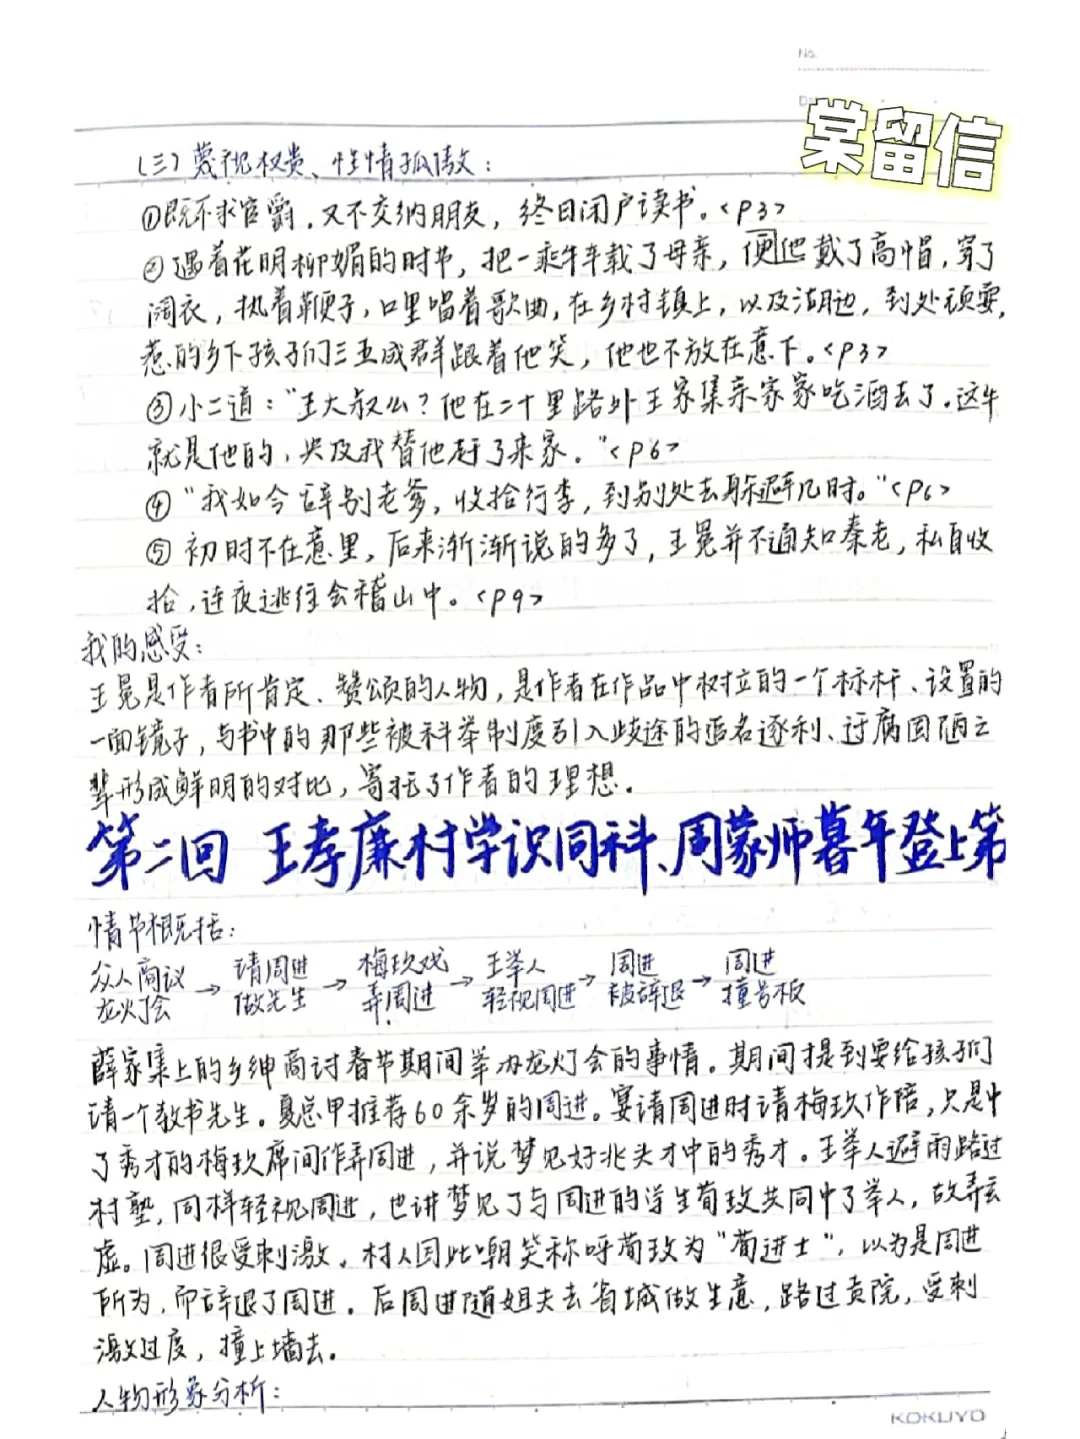 No.
棠留信
(三)蔑视权贵、性情孤傲：
①既不求官爵，又不交纳朋友，终日闭户读书。<P3>
②遇着花明柳媚的时节，把一乘牛车载了母亲，便他戴了高帽，穿了
阔衣，执着鞭子，口里唱着歌曲，在乡村镇上，以及湖边，到处顽耍，
惹的乡下孩子们三五成群跟着他笑，他也不放在意下。<P3>
③小二道："王大叔么？他在二十里路外王家集亲家家吃酒去了。这牛
就是他的，央及我替他赶了来家。"<P6>
④"我如今辞别老爹，收拾行李，到别处去躲避几时。"<P6>
⑤初时不在意里，后来渐渐说的多了，王冕并不通知秦老，私自收
拾，连夜逃往会稽山中。<P9>
我的感受：
王冕是作者所肯定、赞颂的人物，是作者在作品中树立的一个标杆、设置的
一面镜子，与书中的那些被科举制度引入歧途的追名逐利、迂腐固陋之
辈形成鲜明的对比，寄托了作者的理想。
第二回 王孝廉村学识同科、周蒙师暮年登上第
情节概括：
众人商议龙灯会→请周进做先生→梅玖戏弄周进→王举人轻视周进→周进被辞退→周进撞号板
薛家集上的乡绅商讨春节期间举办龙灯会的事情。期间提到要给孩子们
请一个教书先生。夏总甲推荐60余岁的周进。宴请周进时请梅玖作陪，只是中
了秀才的梅玖席间作弄周进，并说梦见好兆头才中的秀才。王举人避雨路过
村塾，同样轻视周进，也讲梦见了与周进的学生荀玫共同中了举人，故弄玄
虚。周进很受刺激。村人因此嘲笑称呼荀玫为"荀进士"，以为是周进
所为，而辞退了周进。后周进随姐夫去省城做生意，路过贡院，受刺
激过度，撞上墙去。
人物形象分析：
KOKUYO